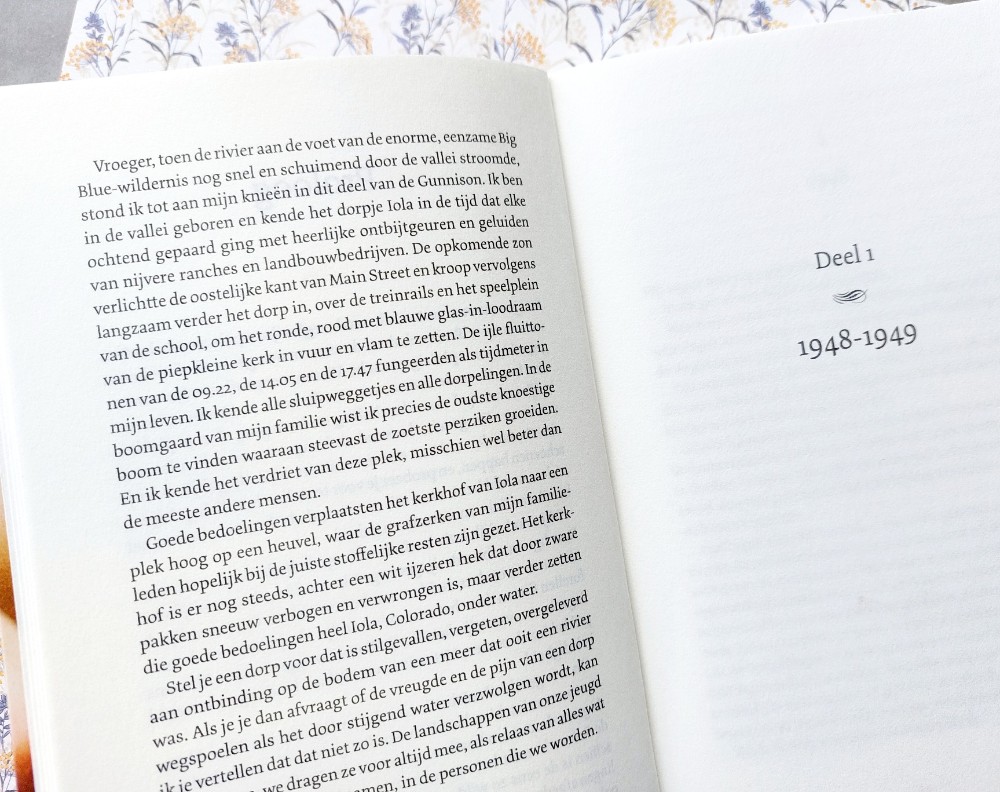 Vroeger, toen de rivier aan de voet van de enorme, eenzame Big
Blue-wildernis nog snel en schuimend door de vallei stroomde,
stond ik tot aan mijn knieën in dit deel van de Gunnison. Ik ben
in de vallei geboren en kende het dorpje Iola in de tijd dat elke
ochtend gepaard ging met heerlijke ontbijtgeuren en geluiden
van nijvere ranches en landbouwbedrijven. De opkomende zon
verlichtte de oostelijke kant van Main Street en kroop vervolgens
langzaam verder het dorp in, over de treinrails en het speelplein
van de school, om het ronde, rood met blauwe glas-in-loodraam
van de piepkleine kerk in vuur en vlam te zetten. De ijle fluitto-
nen van de 09.22, de 14.05 en de 17.47 fungeerden als tijdmeter in
mijn leven. Ik kende alle sluipweggetjes en alle dorpelingen. In de
boomgaard van mijn familie wist ik precies de oudste knoestige
boom te vinden waaraan steevast de zoetste perziken groeiden.
En ik kende het verdriet van deze plek, misschien wel beter dan
de meeste andere mensen.
Goede bedoelingen verplaatsten het kerkhof van Iola naar een
plek hoog op een heuvel, waar de grafzerken van mijn familie-
leden hopelijk bij de juiste stoffelijke resten zijn gezet. Het kerk-
hof is er nog steeds, achter een wit ijzeren hek dat door zware
pakken sneeuw verbogen en verwrongen is, maar verder zetten
die goede bedoelingen heel Iola, Colorado, onder water.
Stel je een dorp voor dat is stilgevallen, vergeten, overgeleverd
aan ontbinding op de bodem van een meer dat ooit een rivier
was. Als je je dan afvraagt of de vreugde en de pijn van een dorp
wegspoelen als het door stijgend water verzwolgen wordt, kan
ik je vertellen dat dat niet zo is. De landschappen van onze jeugd
we dragen ze voor altijd mee, als relaas van alles wat
in de personen die we worden.
Deel 1
1948-1949